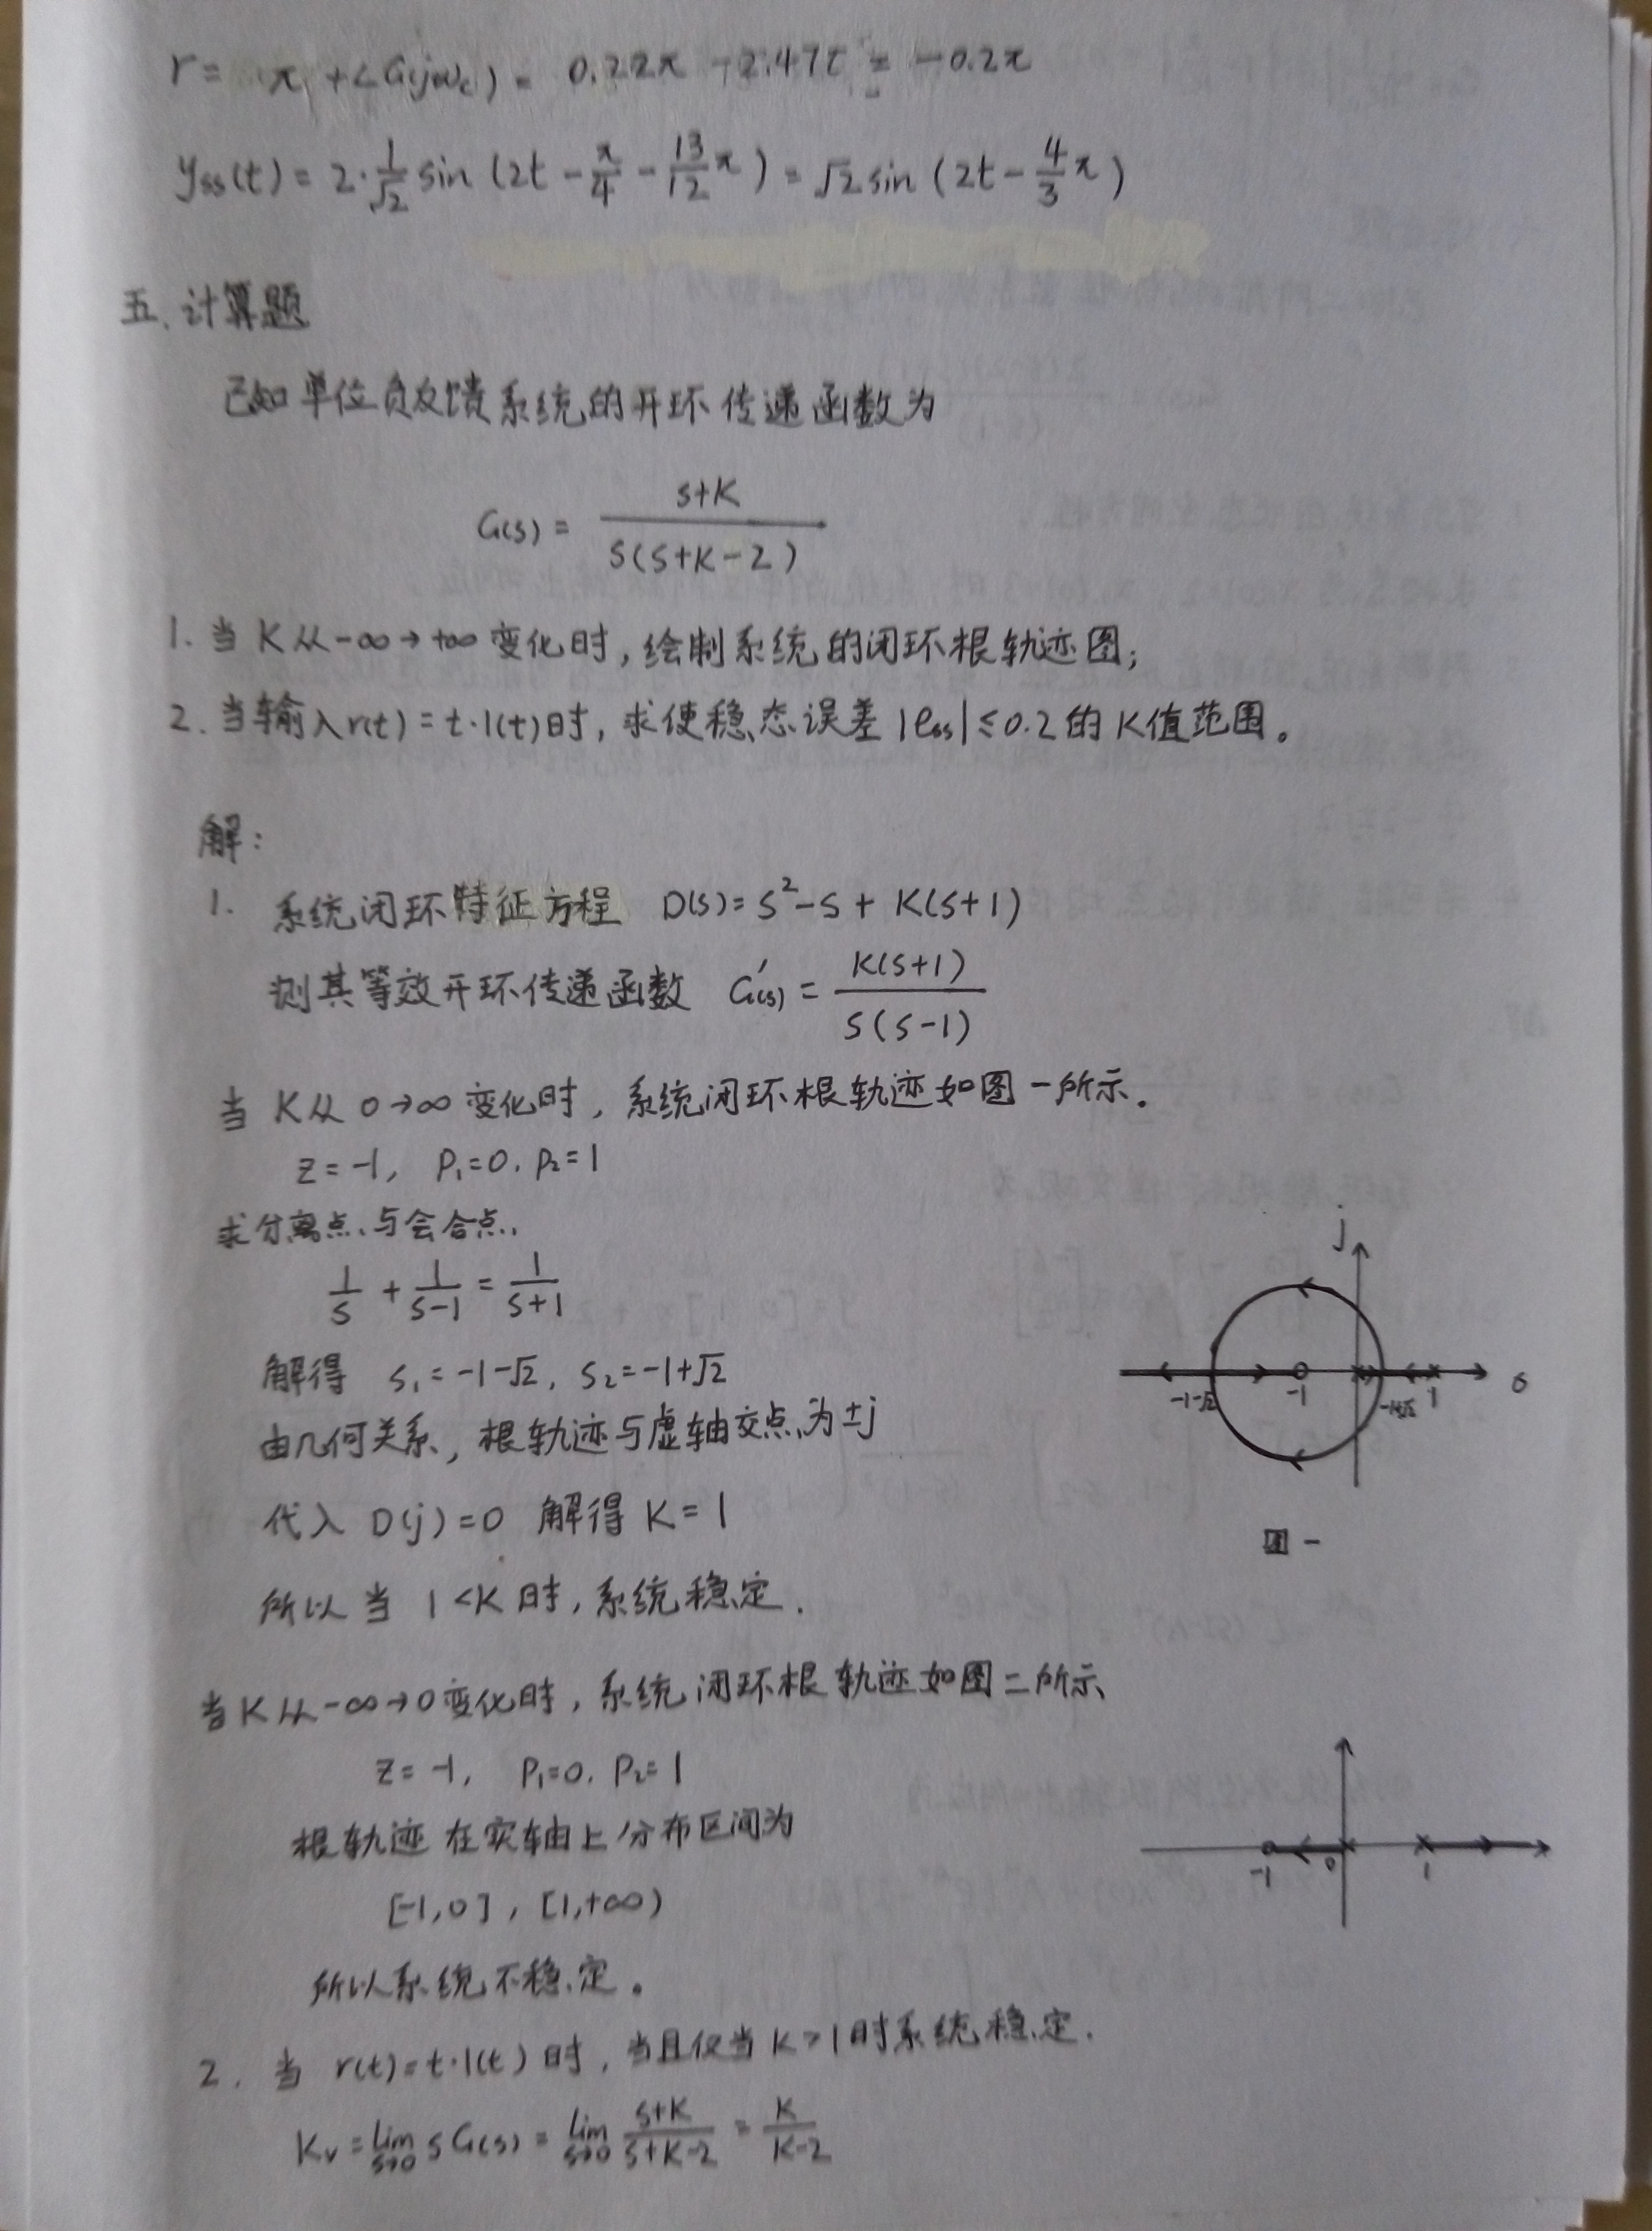 r = π + ∠G(jωc) = 0.22π - 2.47π = -0.2π
yss(t) = 2·1/√2 sin (2t - π/4 - 13/12 π) = √2 sin (2t - 4/3 π)
五、计算题
已知单位负反馈系统的开环传递函数为
G(s) = (s+K) / (s(s+K-2))
1. 当 K从 -∞→+∞ 变化时,绘制系统的闭环根轨迹图;
2. 当输入 r(t) = t·1(t)时,求使稳态误差 |ess| ≤ 0.2 的 K值范围。
解:
1. 系统闭环特征方程 D(s) = s²-s + K(s+1)
则其等效开环传递函数 G'(s) = K(s+1) / (s(s-1))
当 K从 0→∞ 变化时,系统闭环根轨迹如图一所示.
z = -1, P₁=0. P₂=1
求分离点、与会合点.
1/s + 1/(s-1) = 1/(s+1)
解得 s₁ = -1-√2, s₂ = -1+√2
由几何关系,根轨迹与虚轴交点为 ±j
代入 D(j) = 0 解得 K = 1
所以当 1 < K 时,系统稳定.
j
σ
-1-√2 -1 -1+√2 1
图一
当K从 -∞→0 变化时,系统闭环根轨迹如图二所示
z = -1, P₁=0. P₂=1
根轨迹在实轴上分布区间为
[-1,0], [1,+∞)
所以系统不稳定。
-1 0 1
2. 当 r(t) = t·1(t) 时,当且仅当 K>1时系统稳定.
Kv = lim s→0 sG(s) = lim s→0 (s+K)/(s+K-2) = K/(K-2)